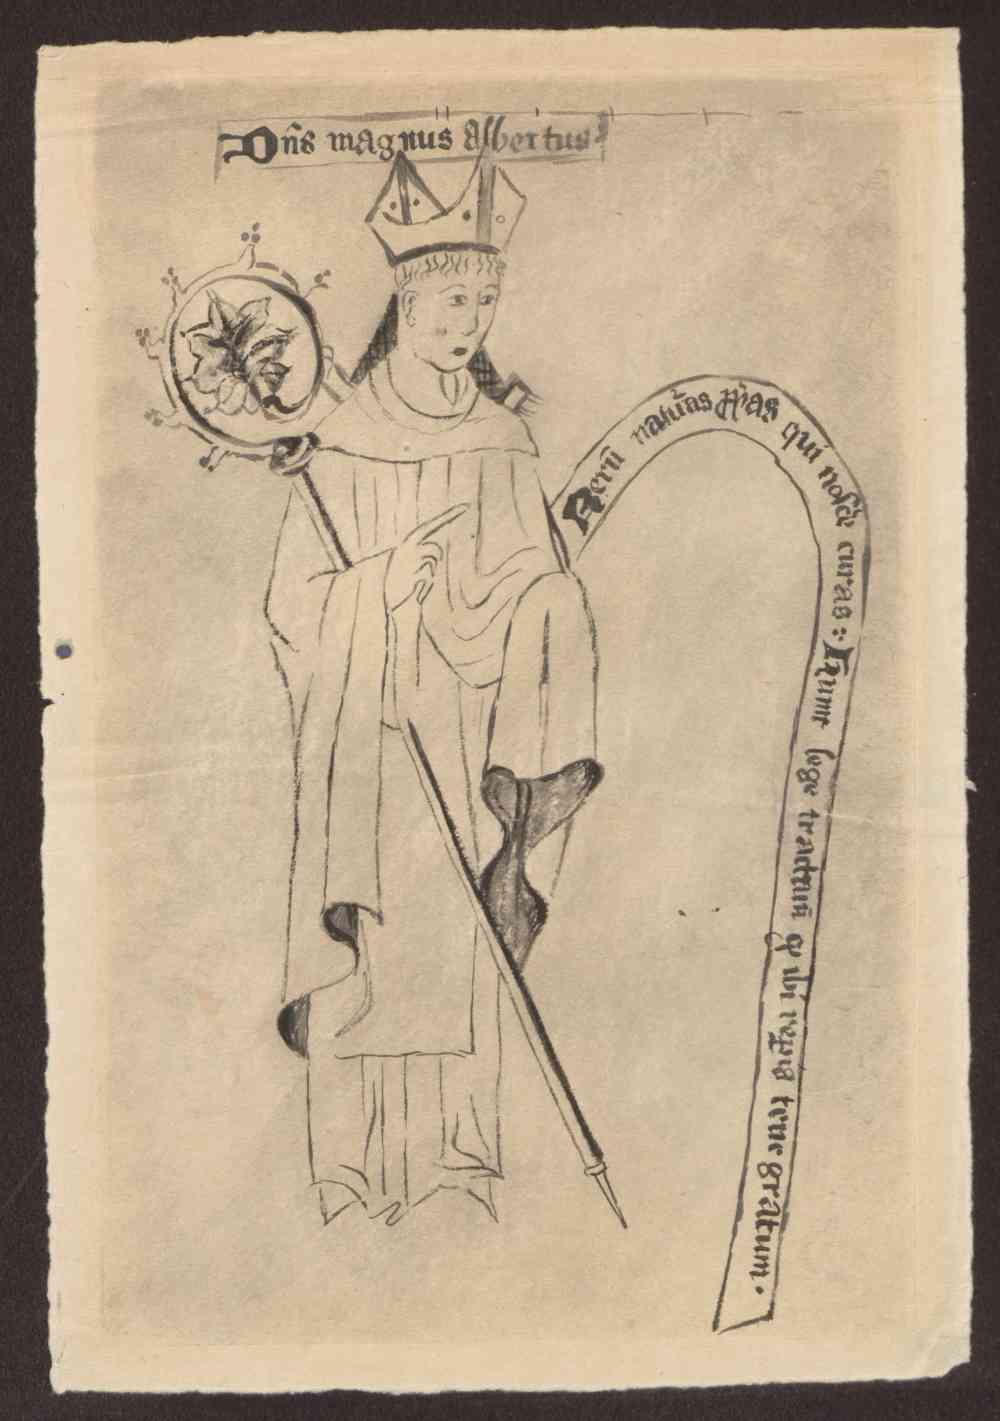 Dn̄s magnus albertus
Rerū naturas qui nosce curas : Hunc lege tractatū ibi repis tene gratum.